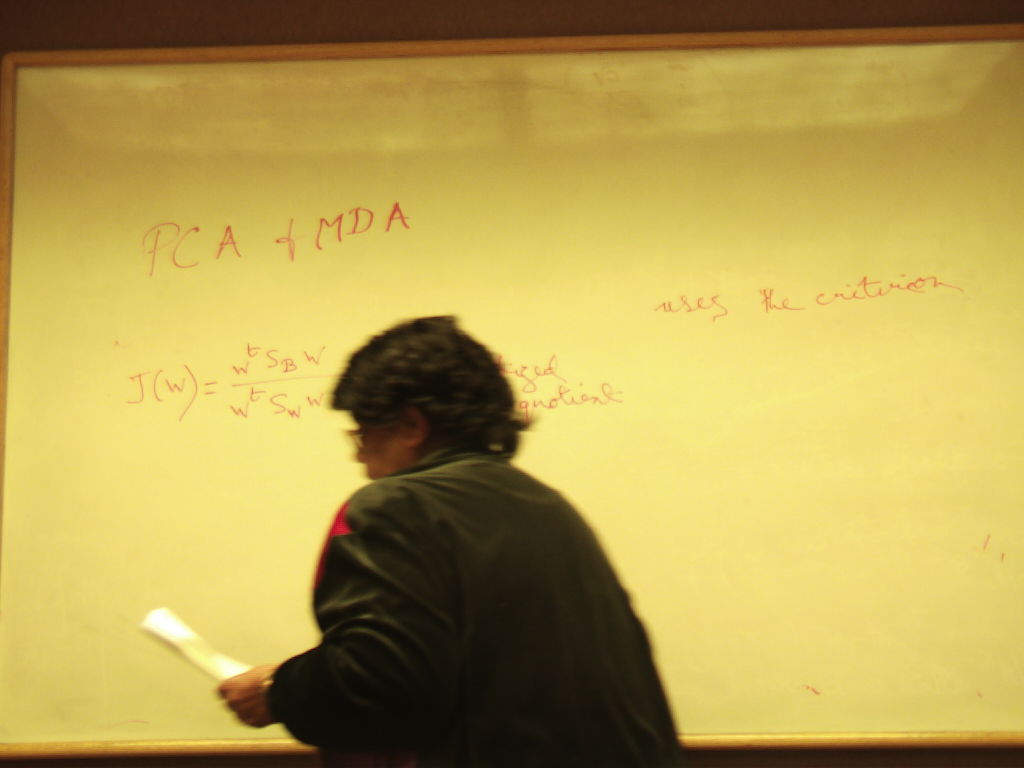 PCA & MDA
uses the criterion
J(w) = wᵗ S_B w / wᵗ S_W w
quotient